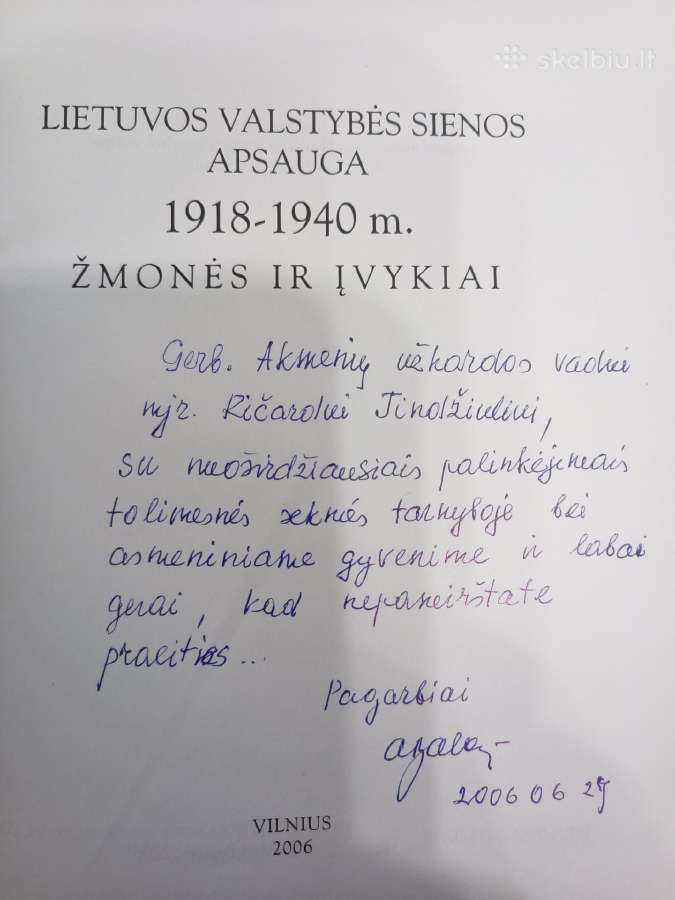 skelbiu.lt
LIETUVOS VALSTYBĖS SIENOS
APSAUGA
1918-1940 m.
ŽMONĖS IR ĮVYKIAI
Gerb. Akmenių užkardos vadui
mjr. Ričardui
su nuoširdžiausiais palinkėjimais
tolimesnės sėkmės tarnyboje bei
asmeniniame gyvenime ir labai
gerai, kad nepamirštate
praeities...
Pagarbiai
2006 06
VILNIUS
2006